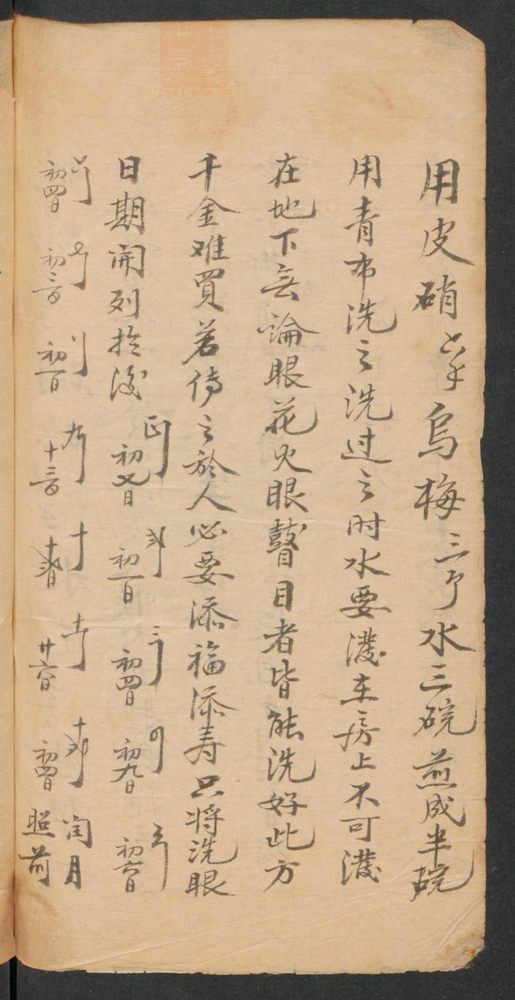 用皮硝六𠦑烏梅三个水三碗煎成半碗
用青布洗之洗过之时水要潑在房上不可潑
在地下無論眼花火眼瞽目者皆能洗好此方
千金难買若傳之於人必要添福添寿只将洗眼
日期開列於後
正月 初七日 二月 初一日 三月 初四日 四月 初九日 五月 初六日
六月 初四日 七月 初三日 八月 初一日 九月 十三日 十月 十一月 廿六日 十二月 初四日 閏月 照前